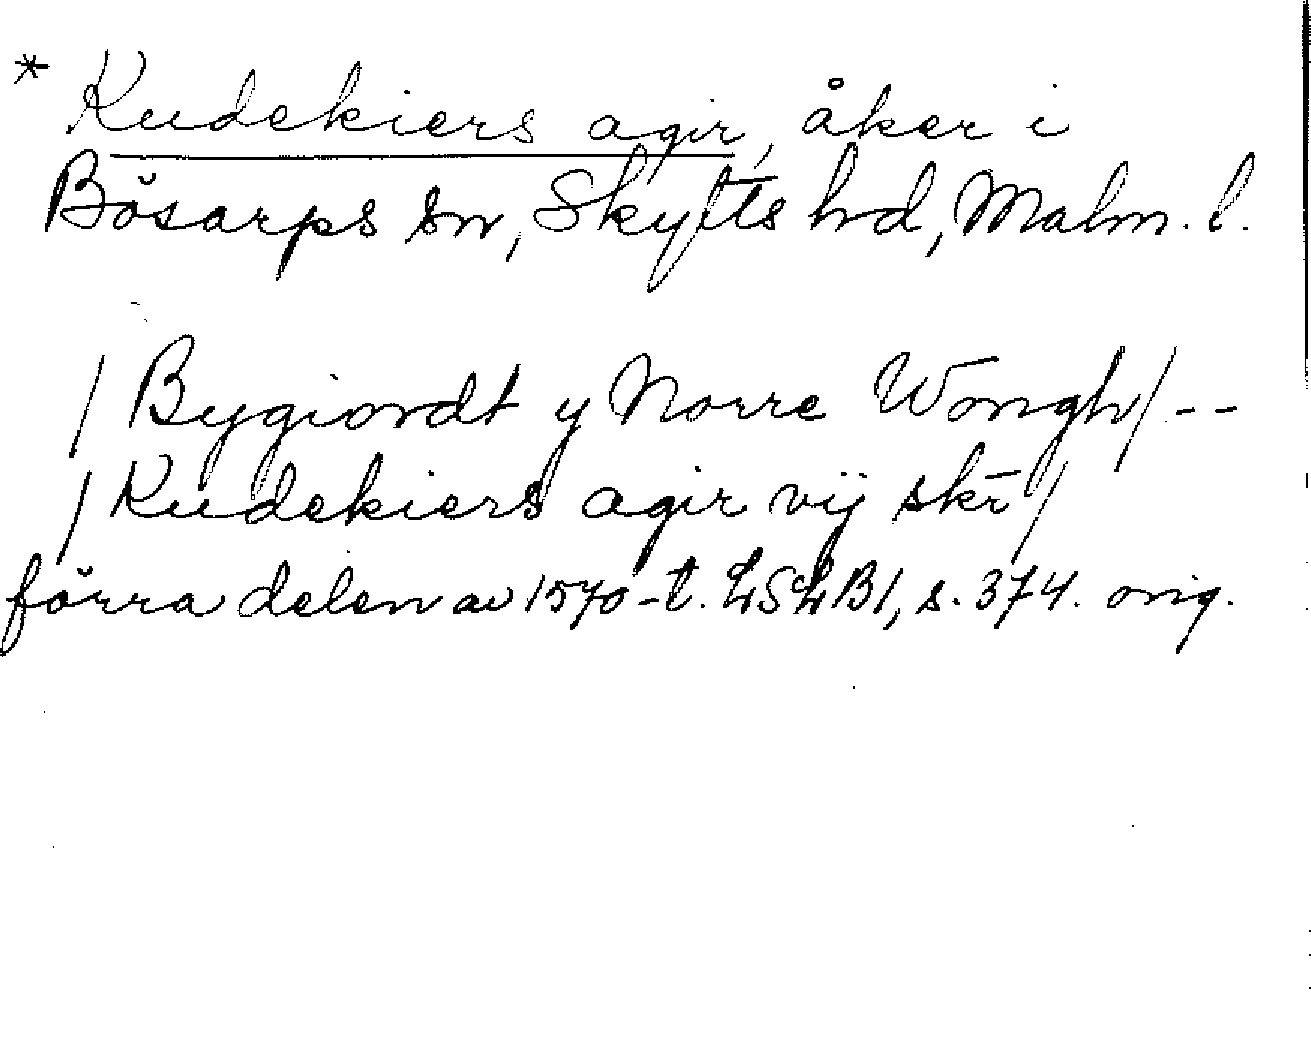 * Kudekiers agir, åker i
Bösarps sn, Skytts hd, Malm. l.
/ Bygiordt y Norre Wongh / --
/ Kudekiers agir vij skr̄ /
förra delen av 1570-t. LSLB1, s. 374. orig.